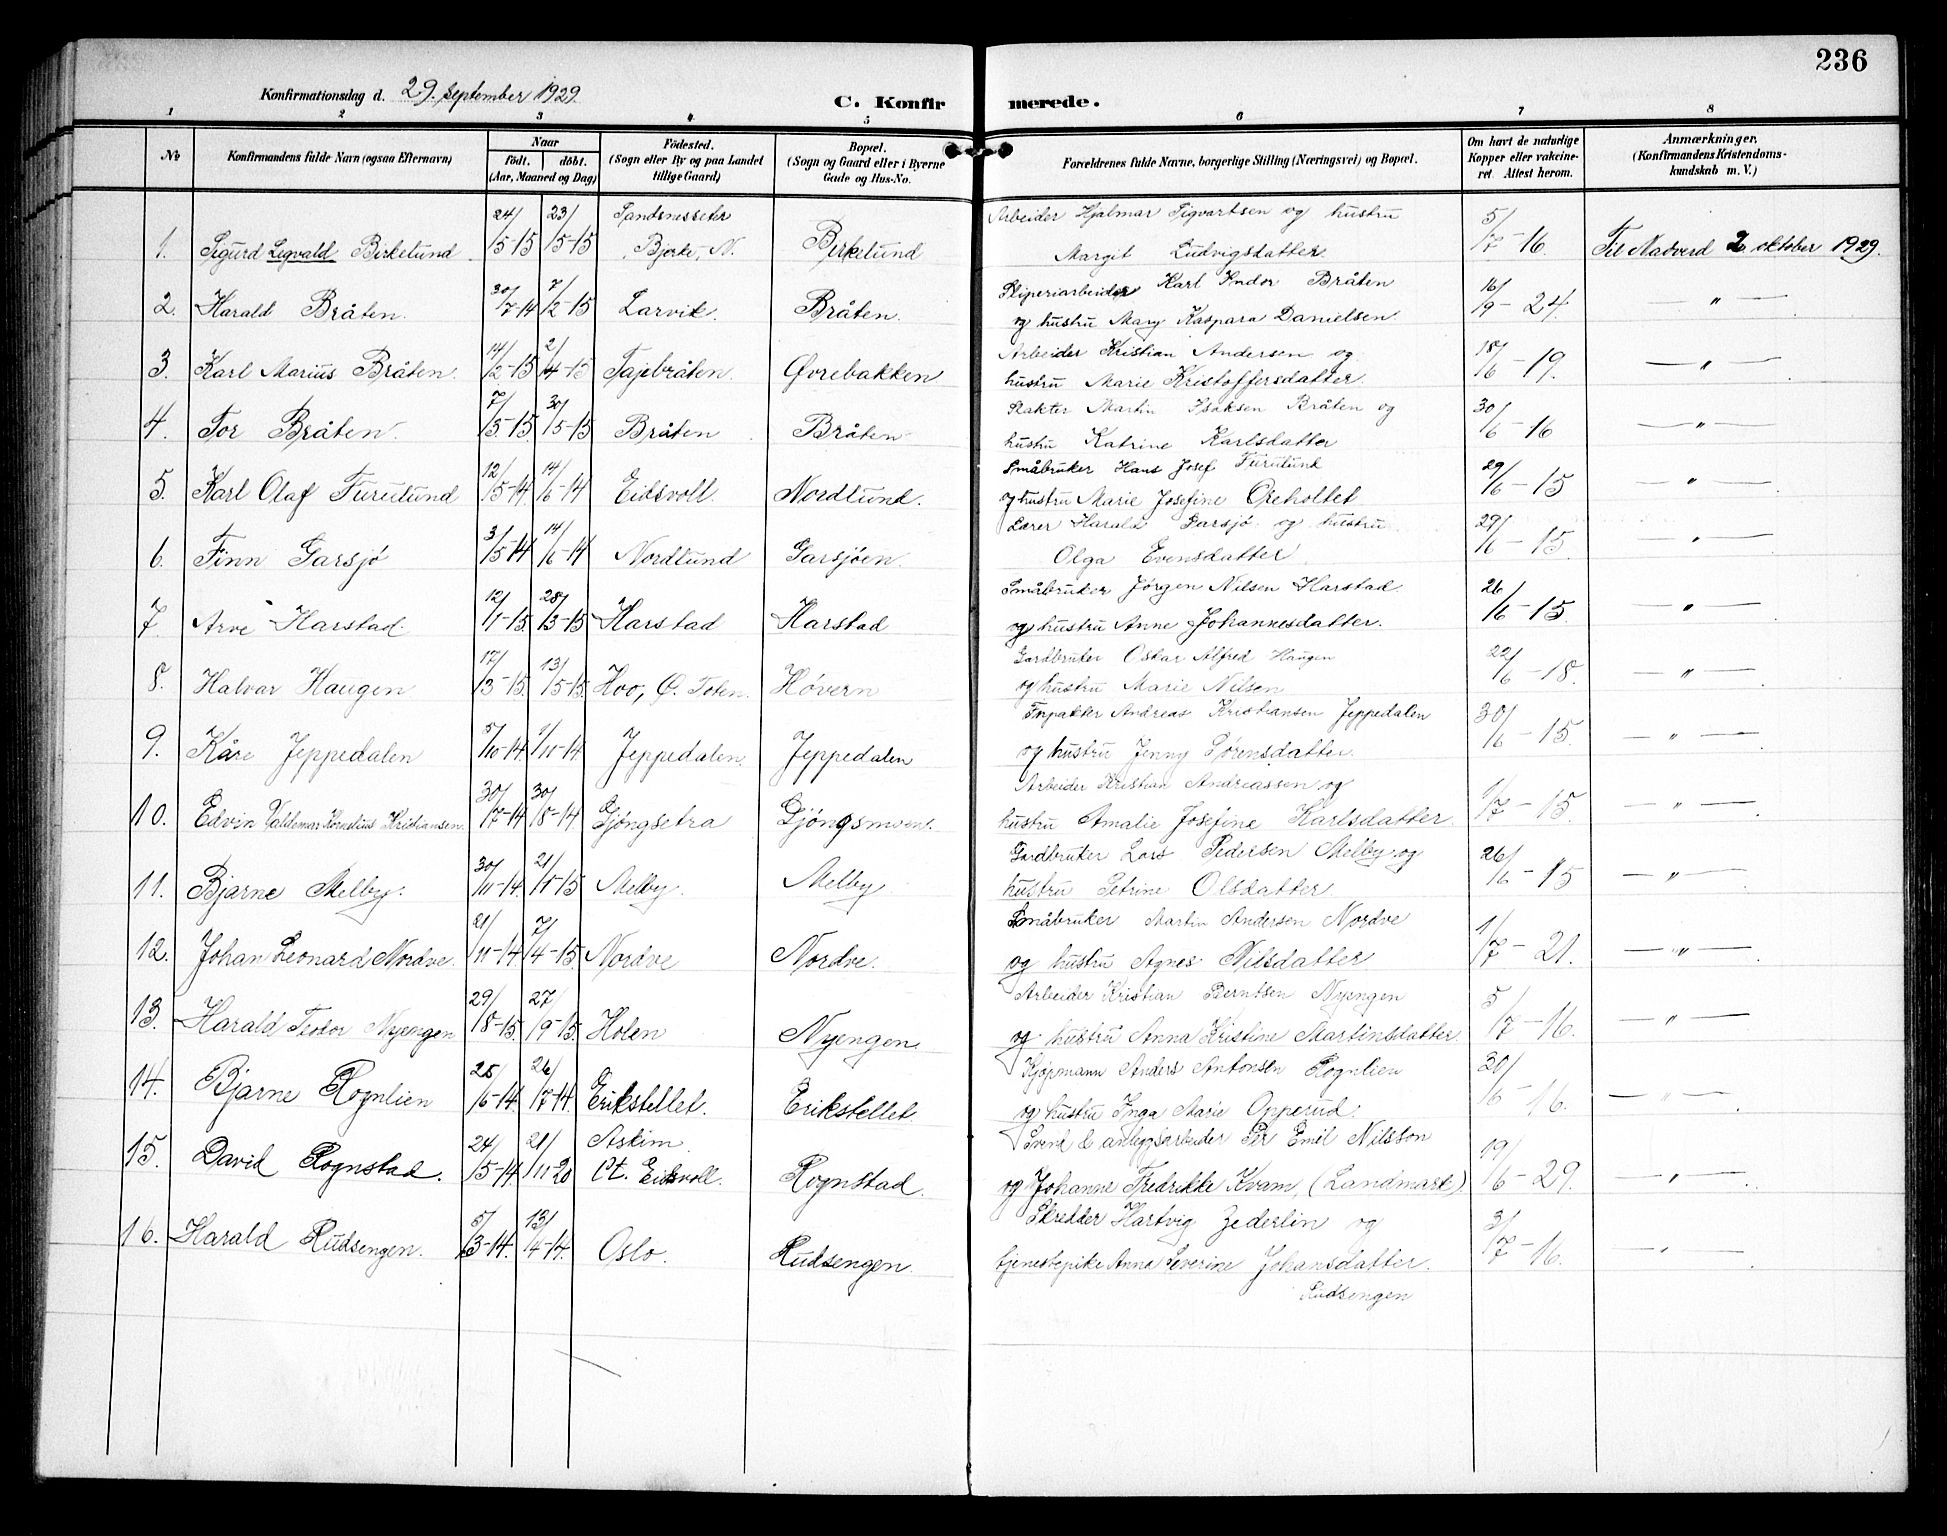 236
Konfirmationsdag d. 29. september 1929.
C. Konfirmerede.
1 2 3 4 5 6 7 8
No
Konfirmandens fulde Navn (ogsaa Efternavn)
Naar
født. døbt.
(Aar, Maaned og Dag)
Fødested.
(Sogn eller By og paa Landet
tillige Gaard)
Bopæl.
(Sogn og Gaard eller i Byerne
Gade og Hus-No.
Forældrenes fulde Navne, borgerlige Stilling (Næringsvei) og Bopæl.
Om havt de naturlige
Kopper eller vakcine-
ret. Attest herom.
Anmærkninger,
(Konfirmandens Kristendoms-
kundskab m. V.)
1. Sigurd Legvald Birkelund 24/5-15 23/5-15 Sandnesseter Bjerke, N. Birkelund Arbeider Hjalmar Sigvartsen og hustru
Margit Ludvigsdatter. 5/7-16 Til Nadverd 2 oktober 1929.
2. Harald Bråten. 30/7-14 7/2-15 Larvik. Bråten. Sliperiarbeider Karl Indor Bråten
og hustru Mary Kaspara Danielsen. 16/9-24. — " —
3. Karl Marius Bråten. 14/2-15 2/4-15 Tajebråten. Øvrebakken Arbeider Kristian Andersen og
hustru Marie Kristoffersdatter. 18/6-19. — " —
4. Tor Bråten. 7/5-15 30/5-15 Bråten Bråten Rakter Martin Isaksen Bråten og
hustru Katrine Karlsdatter 30/6-16 — " —
5. Karl Olaf Furulund 12/5-14 14/6-14 Eidsvoll Nordlund. Småbruker Hans Josef Furulund
og hustru Marie Josefine Oreholtet 29/6-15 — " —
6. Finn Garsjø 3/5-14 14/6-14 Nordlund Garsjøen. Lærer Harald Garsjø og hustru
Olga Evensdatter 29/6-15. — " —
7. Arve Harstad 12/1-15 28/3-15 Harstad Harstad Småbruker Jørgen Nilsen Harstad
og hustru Anne Johannesdatter. 26/6-15 — " —
8. Halvar Haugen 17/3-15. 13/5-15. Hoo, Ø. Toten. Høvern Gardbruker Oskar Alfred Haugen
og hustru Marie Nilsen 22/6-18. — " —
9. Kåre Jeppedalen 5/10-14. 1/11-14 Jeppedalen. Jeppedalen Forpakter Andreas Kristiansen Jeppedalen
og hustru Jenny Sørensdatter. 30/6-15. — " —
10. Edvin Valdemar Kornelius Kristiansen. 30/7-14 30/8-14 Gjøngsetra Gjøngsmoen. Arbeider Kristian Andreassen og
hustru Amalie Josefine Karlsdatter. 1/7-15. — " —
11. Bjarne Melby. 30/11-14. 21/1-15 Melby. Melby Gardbruker Lars Pedersen Melby og
hustru Petrine Olsdatter 26/6-15 — " —
12. Johan Leonard Nordve. 21/11-14 7/4-15. Nordve Nordve. Småbruker Martin Andersen Nordve
og hustru Agnes Nilsdatter 1/7-21. — " —
13. Harald Teodor Nyengen 29/8-15. 27/9-15 Holen Nyengen. Arbeider Kristian Berntsen Nyengen
og hustru Anna Kristine Martinsdatter. 5/7-16. — " —
14. Bjarne Rognlien 25/6-14. 26/7-14 Erikstellet. Erikstellet Kjøpmann Anders Antonsen Rognlien
og hustru Inga Marie Opperud. 30/6-16. — " —
15. David Rognstad. 24/5-14 21/11-20 Askim
Pt. Eidsvoll. Rognstad. Svend & anleggsarbeider Per Emil Nilsson
og Johanne Fredrikke Kvam, (Landmark) 19/6-29. — " —
16. Harald Rudsengen. 5/3-14. 13/4-14. Oslo. Rudsengen. Skredder Hartvig Zederlin og
tjenestepike Anna Severine Johansdatter.
Rudsengen 3/7-16. — " —